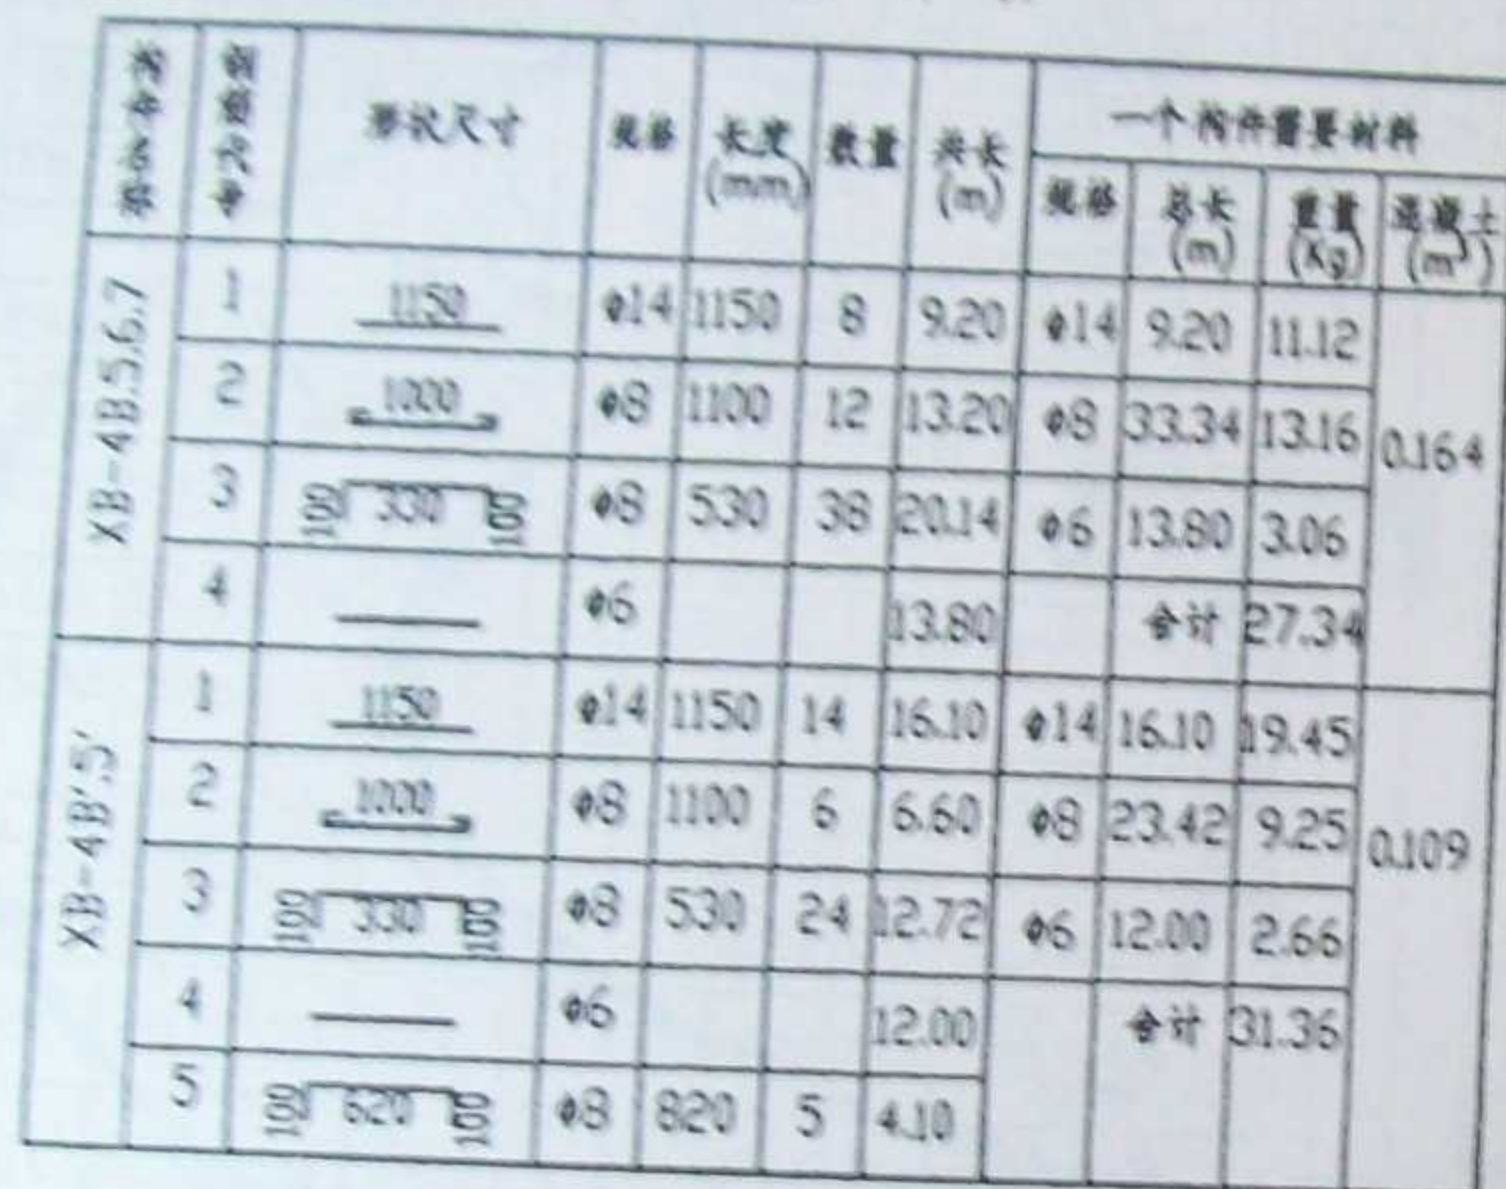 形状尺寸 规格 长度 数量 共长 一个构件需要材料
(mm) (m) 规格 总长 重量 混凝土
(m) (Kg) (m³)
XB-4B.5.6.7
1 1150 φ14 1150 8 9.20 φ14 9.20 11.12
2 1000 φ8 1100 12 13.20 φ8 33.34 13.16 0.164
3 100 330 100 φ8 530 38 20.14 φ6 13.80 3.06
4 φ6 13.80 合计 27.34
XB-4B'.5'
1 1150 φ14 1150 14 16.10 φ14 16.10 19.45
2 1000 φ8 1100 6 6.60 φ8 23.42 9.25 0.109
3 100 330 100 φ8 530 24 12.72 φ6 12.00 2.66
4 φ6 12.00 合计 31.36
5 100 620 100 φ8 820 5 4.10